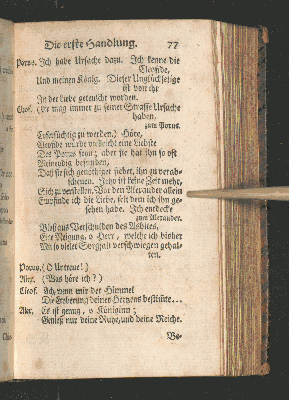 Die erste Handlung. 77
Porus. Ich habe Ursache dazu. Ich kenne die
Cleofide,
Und meinen König. Dieser Unglückselige
ist von ihr
In der Liebe getäuscht worden.
Cleof. (Er mag immer zu seiner Straffe Ursache
haben,
zum Porus.
Eifersüchtig zu werden.) Höre,
Cleofide würde vielleicht eine Liebste
Des Porus seyn; aber sie hat ihn so oft
Meineydig befunden,
Daß sie sich genöthiget siehet, ihn zu verab-
scheuen. Jetzo ist keine Zeit mehr,
Sich zu verstellen. Vor den Alexander allein
Empfinde ich die Liebe, seit dem ich ihn ge-
sehen habe. Ich entdecke
zum Alexander.
Bloß aus Verschulden des Asbites,
Die Neigung, o Herr, welche ich bisher
Mit so vieler Sorgfalt verschwiegen gehal-
ten.
Porus. (O Untreue!)
Alex. (Was höre ich?)
Cleof. Ach, wenn mir der Himmel
Die Eroberung deines Hertzens bestimte...
Alex. Es ist genug, o Königinn;
Genieß nur deine Ruhe, und deine Reiche.
Be-